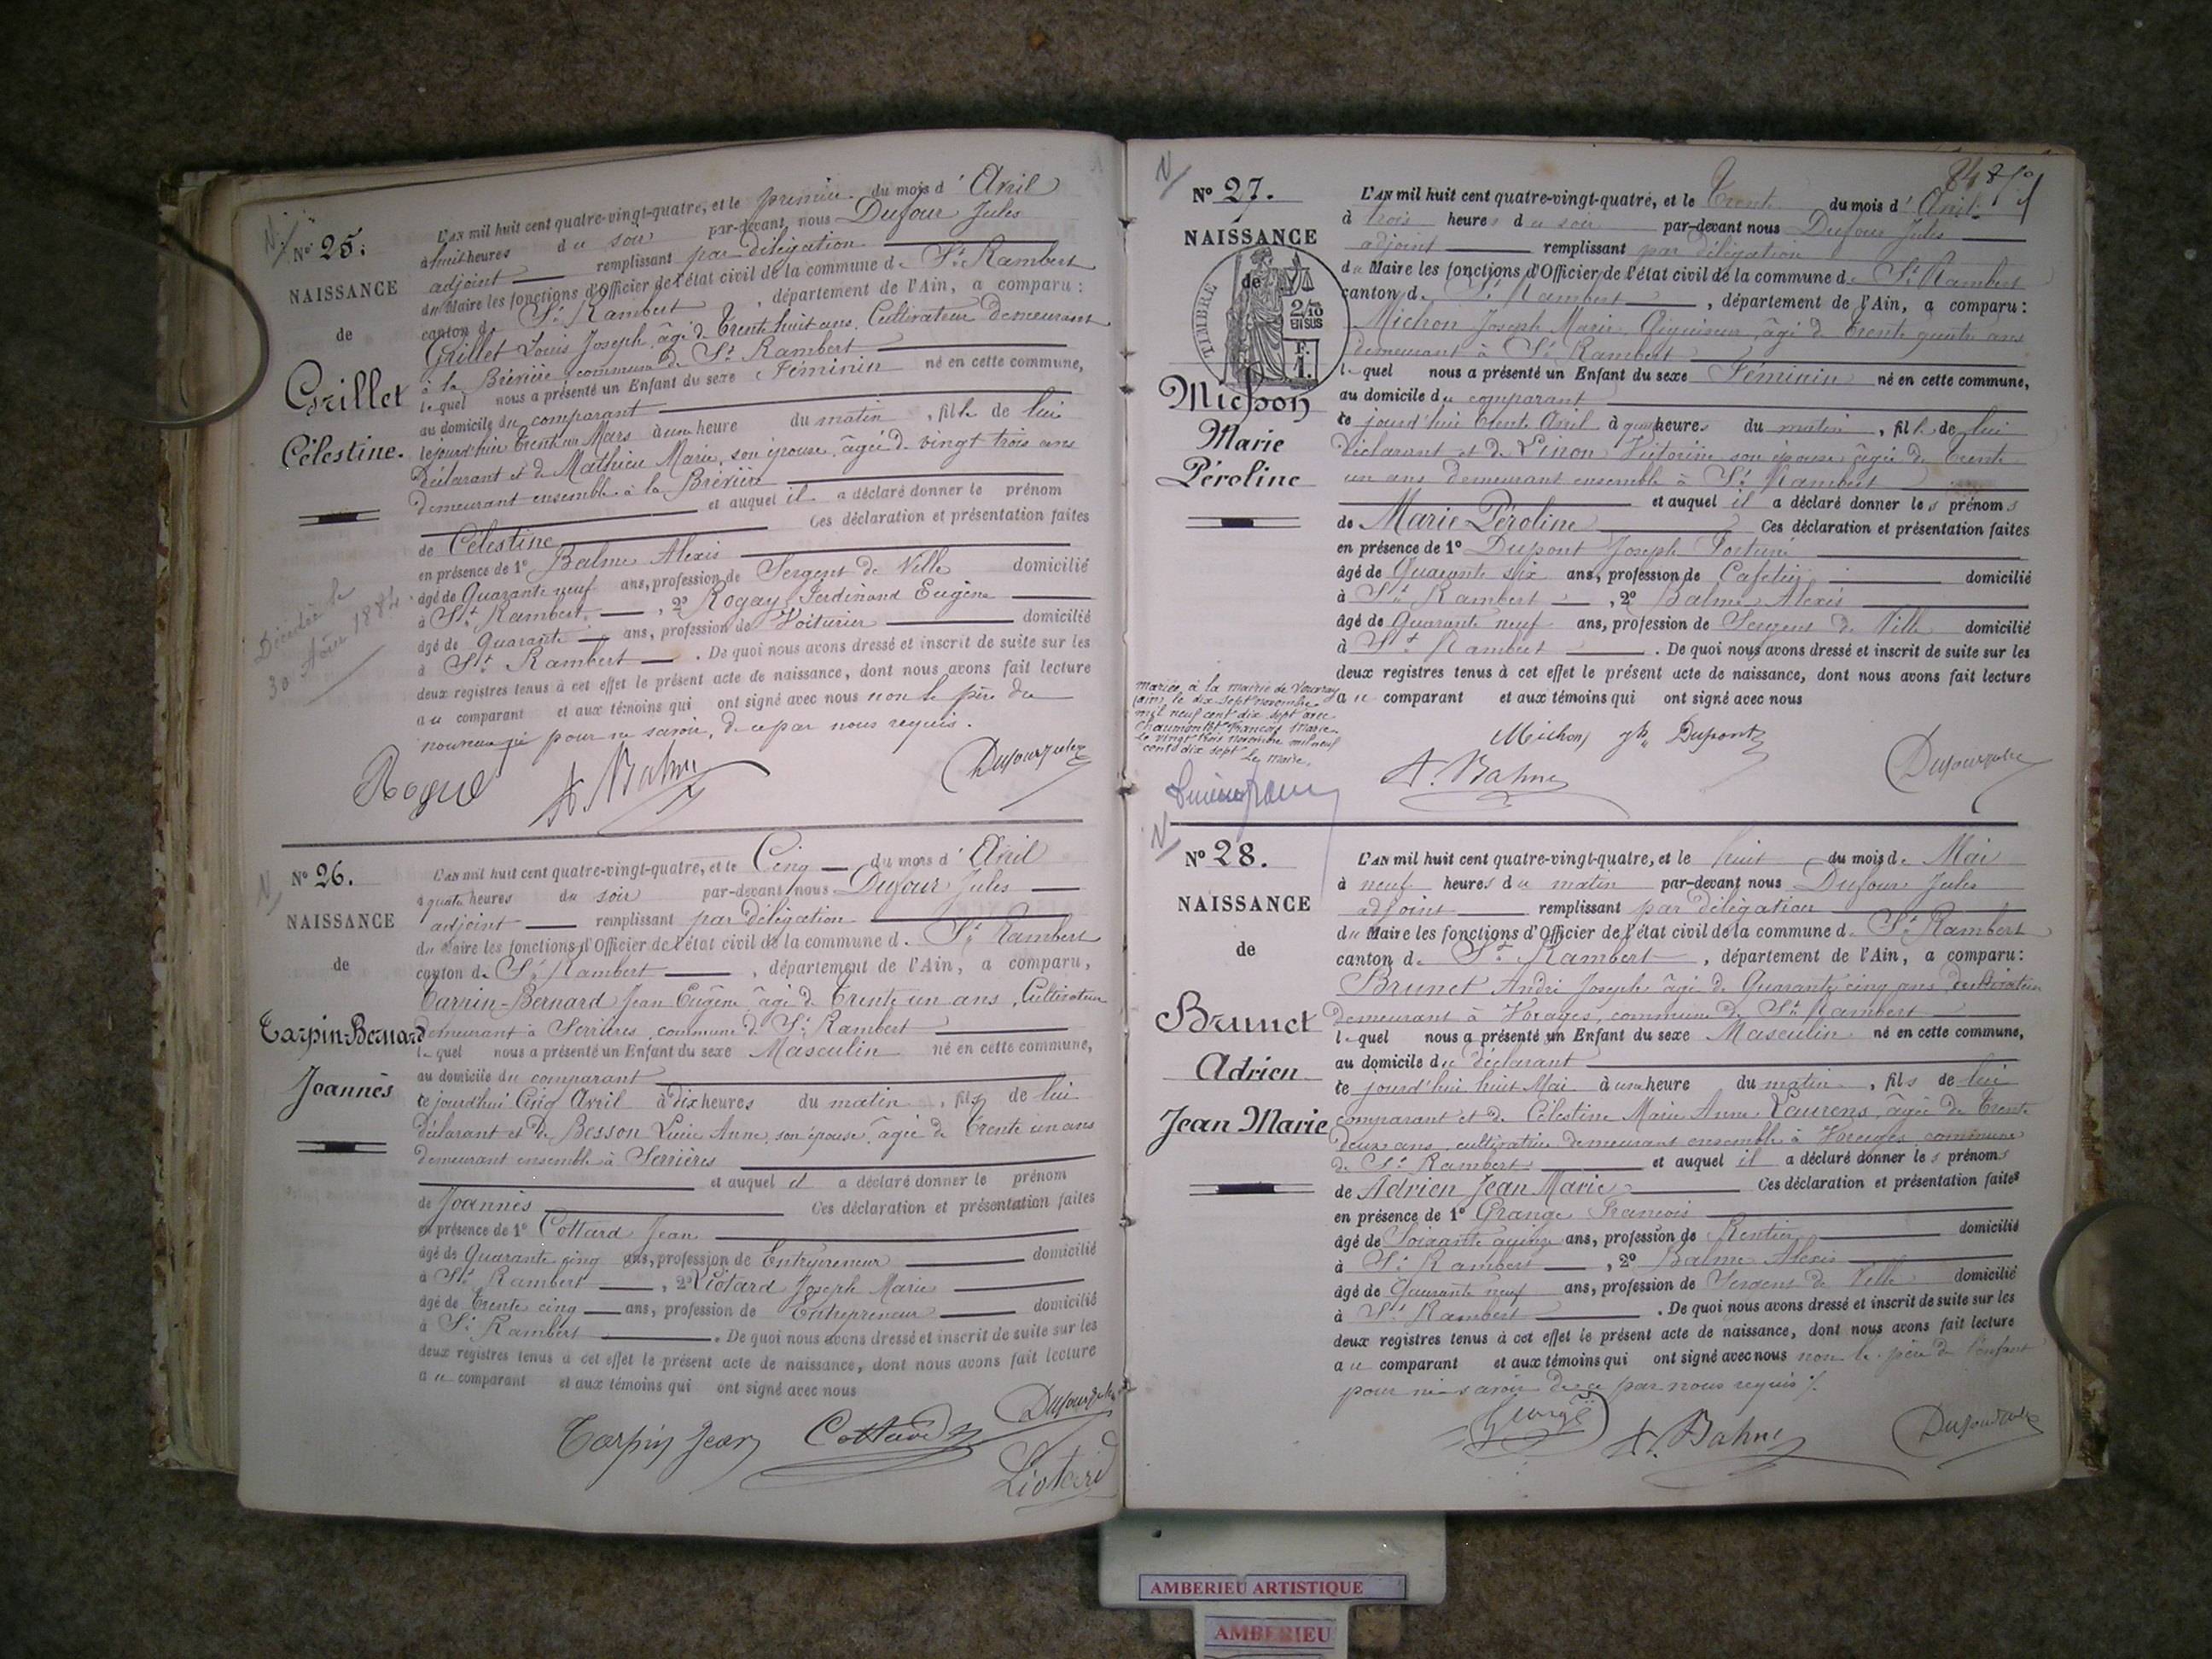 N° 25.
NAISSANCE
de
Grillet
Célestine.
Décédée le
30 Août 1884.
L'AN mil huit cent quatre-vingt-quatre, et le premier du mois d'Avril
à huit heures du soir par-devant nous Dufour Jules
adjoint remplissant par délégation
du Maire les fonctions d'Officier de l'état civil de la commune de St Rambert
canton de St Rambert, département de l'Ain, a comparu :
Grillet Louis Joseph, âgé de trente huit ans, Cultivateur demeurant
à la Brévière commune de St Rambert
lequel nous a présenté un Enfant du sexe Féminin né en cette commune,
au domicile du comparant
le jourd'hui trente un Mars à une heure du matin, fille de lui
Déclarant et de Mathieu Marie, son épouse, âgée de vingt trois ans
demeurant ensemble à la Brévière
et auquel il a déclaré donner le prénom
de Célestine Ces déclaration et présentation faites
en présence de 1° Balme Alexis
âgé de Quarante neuf ans, profession de Sergent de Ville domicilié
à St Rambert, 2° Rogay Ferdinand Eugène
âgé de Quarante ans, profession de Voiturier domicilié
à St Rambert. De quoi nous avons dressé et inscrit de suite sur les
deux registres tenus à cet effet le présent acte de naissance, dont nous avons fait lecture
au comparant et aux témoins qui ont signé avec nous non le père du
nouveau né pour ne savoir, de ce par nous requis.
A. Balme
N° 26.
NAISSANCE
de
Tarpin-Bernard
Joannès
L'AN mil huit cent quatre-vingt-quatre, et le Cinq du mois d'Avril
à quatre heures du soir par-devant nous Dufour Jules
adjoint remplissant par délégation
du Maire les fonctions d'Officier de l'état civil de la commune de St Rambert
canton de St Rambert, département de l'Ain, a comparu,
Tarpin-Bernard Jean Eugène âgé de trente un ans, Cultivateur
demeurant à Serrières, commune de St Rambert
lequel nous a présenté un Enfant du sexe Masculin né en cette commune,
au domicile du comparant
le jourd'hui Cinq Avril à dix heures du matin, fils de lui
déclarant et de Besson Lucie Anne, son épouse, âgée de trente un ans
demeurant ensemble à Serrières
et auquel il a déclaré donner le prénom
de Joannès Ces déclaration et présentation faites
en présence de 1° Cottard Jean
âgé de Quarante cinq ans, profession de Entrepreneur domicilié
à St Rambert, 2° Liotard Joseph Marie
âgé de trente cinq ans, profession de Entrepreneur domicilié
à St Rambert. De quoi nous avons dressé et inscrit de suite sur les
deux registres tenus à cet effet le présent acte de naissance, dont nous avons fait lecture
au comparant et aux témoins qui ont signé avec nous
Tarpin Jean Cottard
Liotard
84
N° 27.
NAISSANCE
de
TIMBRE
2/10
EN SUS
F.
1.
Michon
Marie
Péroline
Mariée à la mairie de
(Ain) le dix sept novembre
mil neuf cent dix sept avec
Chaumontet François Marie
Le vingt trois novembre mil neuf
cent dix sept Le Maire,
L'AN mil huit cent quatre-vingt-quatre, et le Trente du mois d'Avril
à trois heures du soir par-devant nous Dufour Jules
adjoint remplissant par délégation
du Maire les fonctions d'Officier de l'état civil de la commune de St Rambert
canton de St Rambert, département de l'Ain, a comparu :
Michon Joseph Marie âgé de trente quatre ans
demeurant à St Rambert
lequel nous a présenté un Enfant du sexe Féminin né en cette commune,
au domicile du comparant
le jourd'hui trente Avril à quatre heures du matin, fille de lui
déclarant et de Vinon Victorine son épouse âgée de trente
un ans demeurant ensemble à St Rambert
et auquel il a déclaré donner les prénoms
de Marie Péroline Ces déclaration et présentation faites
en présence de 1° Dupont Joseph Fortuné
âgé de Quarante six ans, profession de Cafetier domicilié
à St Rambert, 2° Balme Alexis
âgé de Quarante neuf ans, profession de Sergent de Ville domicilié
à St Rambert. De quoi nous avons dressé et inscrit de suite sur les
deux registres tenus à cet effet le présent acte de naissance, dont nous avons fait lecture
au comparant et aux témoins qui ont signé avec nous
Michon jh Dupont
A. Balme
N° 28.
NAISSANCE
de
Brunet
Adrien
Jean Marie
L'AN mil huit cent quatre-vingt-quatre, et le huit du mois de Mai
à neuf heures du matin par-devant nous Dufour Jules
adjoint remplissant par délégation
du Maire les fonctions d'Officier de l'état civil de la commune de St Rambert
canton de St Rambert, département de l'Ain, a comparu :
Brunet André Joseph âgé de Quarante cinq ans, cultivateur
demeurant à commune de St Rambert
lequel nous a présenté un Enfant du sexe Masculin né en cette commune,
au domicile du déclarant
le jourd'hui huit Mai à une heure du matin, fils de lui
comparant et de Célestine Marie Anne Laurens, âgée de trente
deux ans, cultivatrice demeurant ensemble à commune
de St Rambert et auquel il a déclaré donner les prénoms
de Adrien Jean Marie Ces déclaration et présentation faites
en présence de 1° Grange François
âgé de Soixante quinze ans, profession de Rentier domicilié
à St Rambert, 2° Balme Alexis
âgé de Quarante neuf ans, profession de Sergent de Ville domicilié
à St Rambert. De quoi nous avons dressé et inscrit de suite sur les
deux registres tenus à cet effet le présent acte de naissance, dont nous avons fait lecture
au comparant et aux témoins qui ont signé avec nous non le père de l'enfant
pour ne savoir de ce par nous requis
A. Balme
AMBERIEU ARTISTIQUE
AMBERIEU